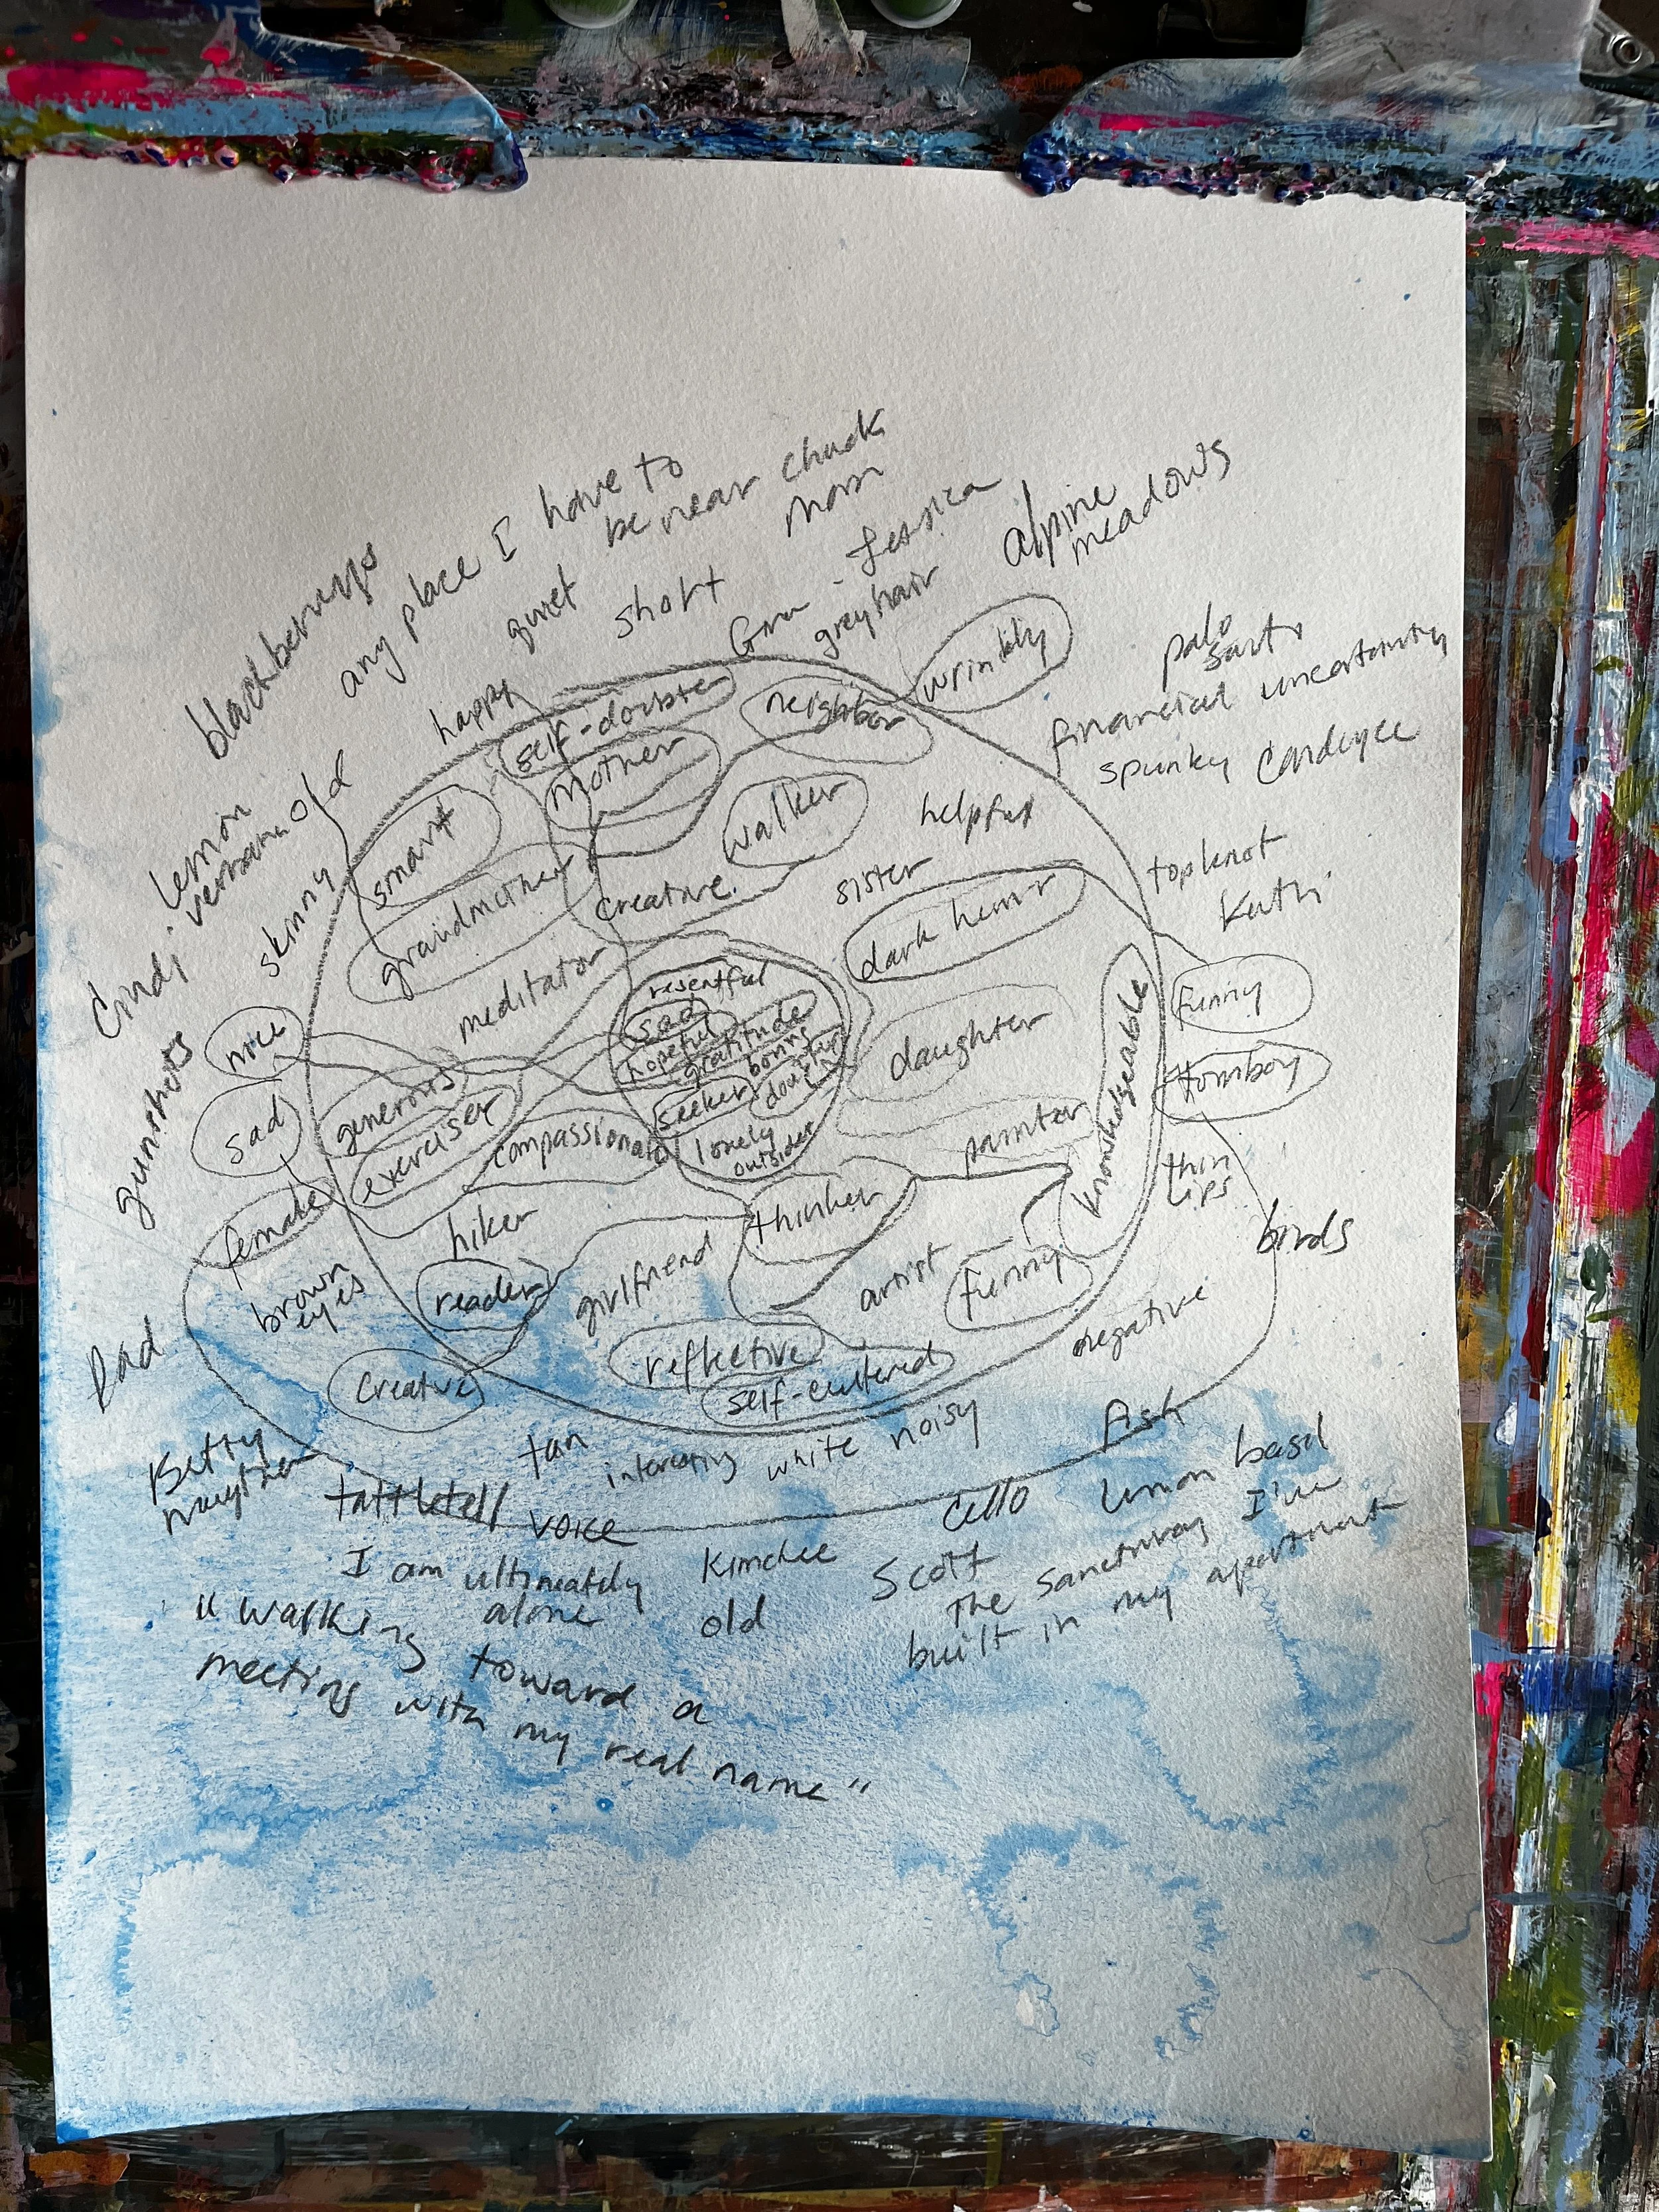 blackberrys
any place I have to
be near chuck
quiet
short
mom
Jessica
grey hair
alpine
meadows
palo
financial uncertainty
spunky
topknot
Kathi
wrinkly
happy
self-doubter
neighbor
mother
lemon
old
skinny
Cindi
smart
walker
helpful
grandmother
creative
sister
dark humor
meditator
resentful
sad
hopeful
gratitude
boring
seeker
doubtful
lonely
outsider
daughter
knowledgeable
funny
tomboy
nice
sad
gunshots
generous
exerciser
compassionate
painter
thin
lips
birds
female
hiker
thinker
brown
eyes
reader
girlfriend
artist
funny
negative
Dad
creative
reflective
self-centered
Betty
tan
interesting
white
noisy
fish
tattletell
voice
cello
lemon basil
I am ultimately
alone
Kimchee
old
Scott
the sanctuary I've
built in my apartment
"walking toward a
meeting with my real name"